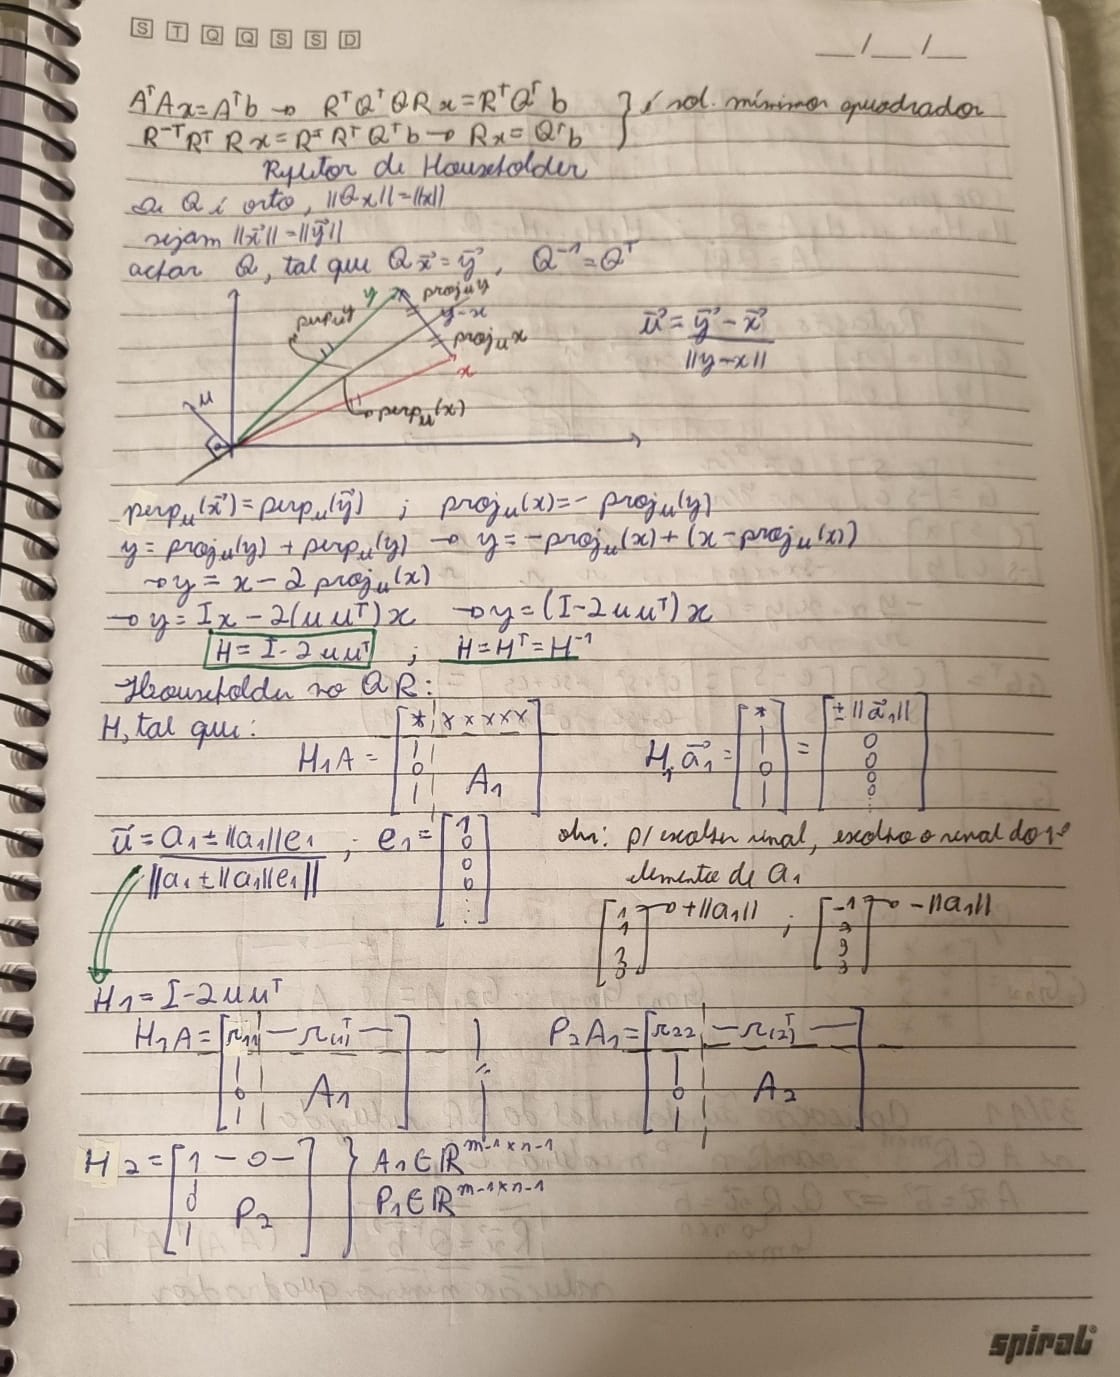 S T Q Q S S D
__/__/__
AᵀAx=Aᵀb → RᵀQᵀQRx=RᵀQᵀb } é sol. mínimos quadrados
R⁻ᵀRᵀRx=R⁻ᵀRᵀQᵀb → Rx=Qᵀb
Refletor de Householder
se Q é orto, ||Qx||=||x||
sejam ||x⃗||=||y⃗||
achar Q, tal que Qx⃗=y⃗, Q⁻¹=Qᵀ
y projᵤy
perpᵤy y-x
projᵤx
x
u →perpᵤ(x)
u⃗ = y⃗ - x⃗
||y-x||
perpᵤ(x⃗)=perpᵤ(y⃗) ; projᵤ(x)=-projᵤ(y)
y=projᵤ(y)+perpᵤ(y) → y=-projᵤ(x)+(x-projᵤ(x))
→y=x-2projᵤ(x)
→y=Ix-2(uuᵀ)x →y=(I-2uuᵀ)x
H=I-2uuᵀ ; H=Hᵀ=H⁻¹
Householder no QR:
H, tal que:
H₁A = [* x x x x x
| 0 | A₁]
H₁a⃗₁ = [* | 0 |] = [±||a⃗₁|| 0 0 0 0 ⋮]
u⃗ = a₁±||a₁||e₁ ; e₁ = [1 0 0 0 ⋮]
||a₁±||a₁||e₁||
obs: p/ escolher sinal, escolho o sinal do 1º
elemento de a₁
[1 1 3 3]→+||a₁|| ; [-1 2 3 3]→-||a₁||
H₁=I-2uuᵀ
H₁A = [r₁₁ — r₍₁₎ᵀ —
| 0 | A₁]
P₂A₁ = [r₂₂ — r₍₂₎ᵀ —
| 0 | A₂]
H₂ = [1 — 0 —
| 0 | P₂]
} A₁∈ℝᵐ⁻¹ˣⁿ⁻¹
P₁∈ℝᵐ⁻¹ˣⁿ⁻¹
spiral®